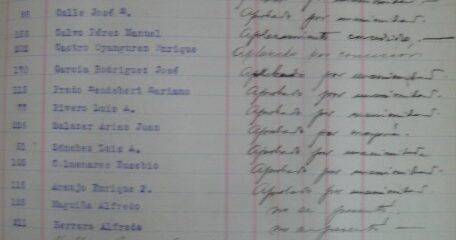 Calle José R. Aprobado por unanimidad.
Calvo Pérez Manuel Aplazamiento concedido.—
Castro Oyanguren Enrique Aplazado por
170 Garcia Rodriguez José Aprobado por unanimidad.
Prado Heudebert Mariano Aprobado por unanimidad.
77 Rivero Luis A. Aprobado por unanimidad.
Salazar Arias Juan Aprobado por mayoría.
Sánchez Luis A. Aprobado por unanimidad.
105 Colmenares Eusebio Aprobado por unanimidad.
116 Araujo Enrique P. Aprobado por unanimidad.
Maguiña Alfredo no se presentó.
211 Herrera Alfredo no se presentó —